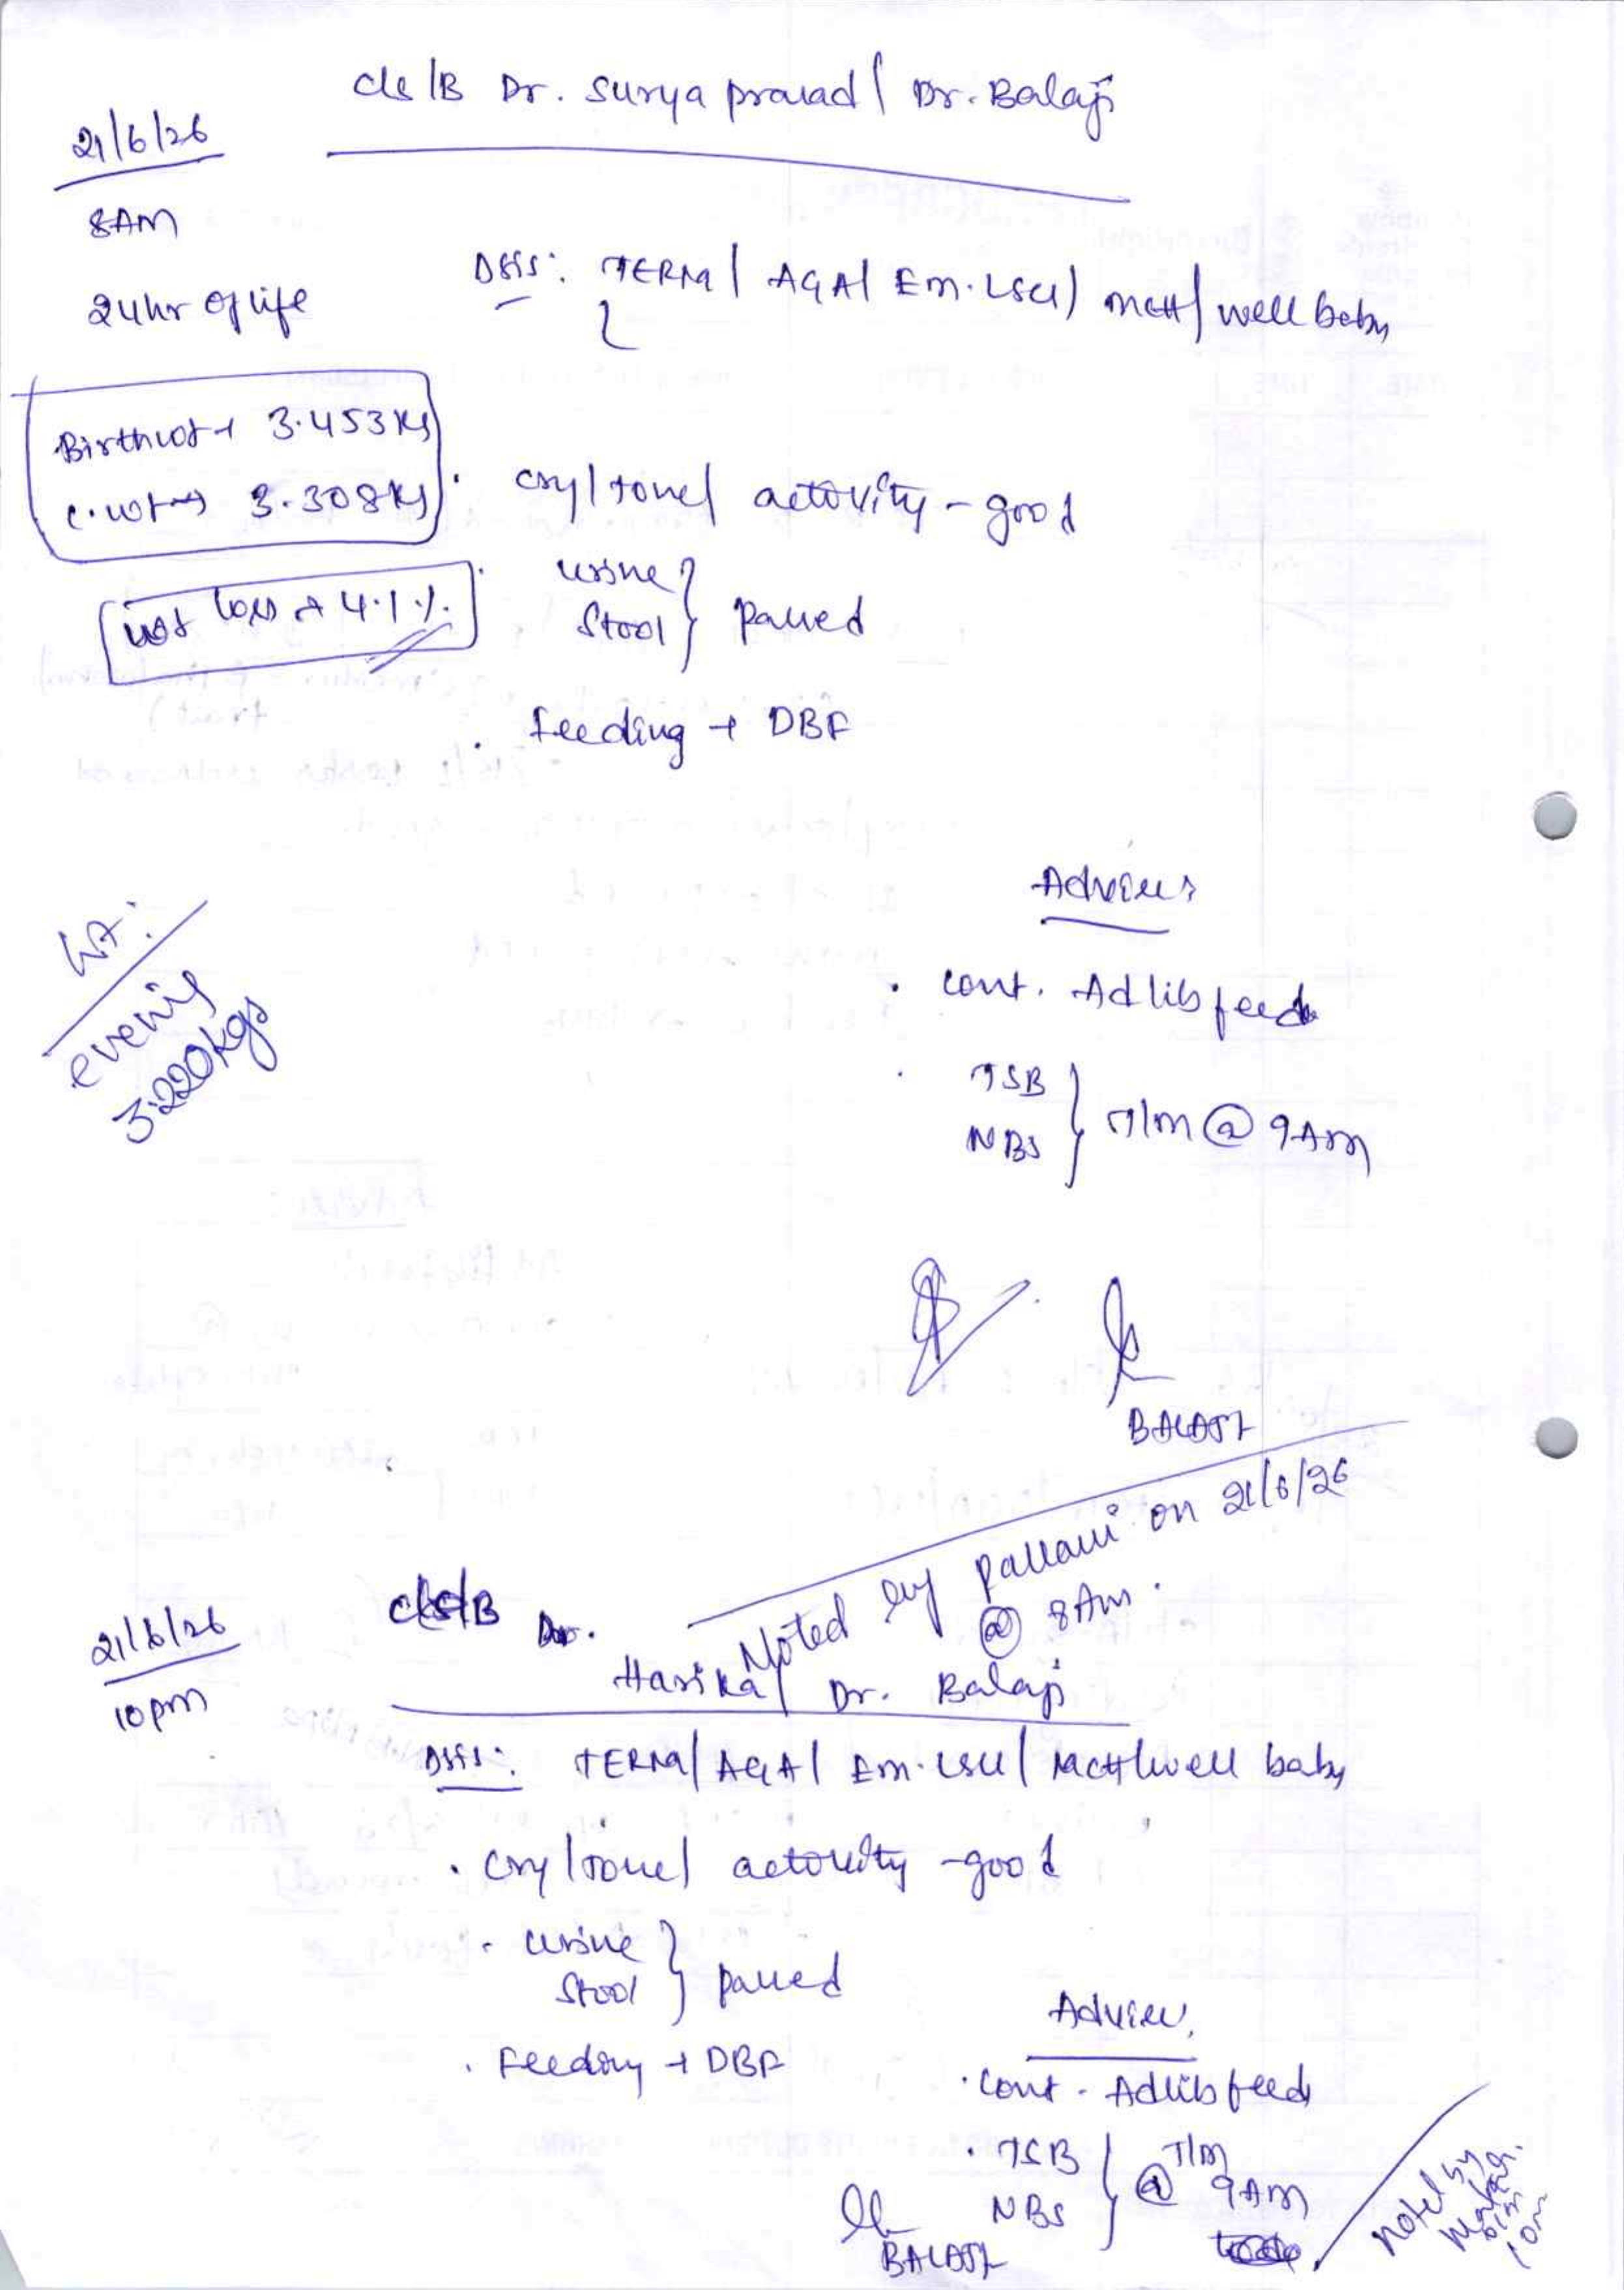 21/6/26
c/s/B Dr. Surya prasad / Dr. Balaji
8AM
24hr of life
DSIS: TERM / AGA / Em. LSCS / MCH / well baby
Birth wt → 3.453 kg
c. wt → 3.308 kg
wt loss → 4.1 %.
• cry / tone / activity - good
• urine } passed
stool
• Feeding → DBF
wt:
evening
3.220 kgs
Advice
• cont. Ad lib feeds
• TSB } T/m @ 9AM
NBS
BALAJI
Noted by pallavi on 21/6/26
@ 8Am.
21/6/26
10pm
c/s/B Dr.
Harika / Dr. Balaji
DSIS: TERM / AGA / Em. LSCS / MCH / well baby
• cry / tone / activity - good
• urine } passed
stool
• Feeding → DBF
Advice
• cont. Ad lib feeds
• TSB } @ T/m 9AM
NBS
BALAJI
Noted by